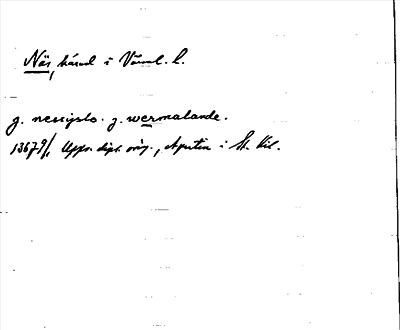 Näs, härad i Värml. l.
g. nessyslo. j. wermalande.
1367 9/1 Upps. dipl. orig., Apertin i St. Kil.